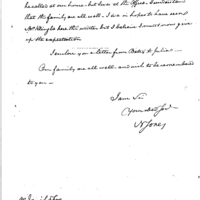 he called at our home - but was at the office. I understand
that the family are all well - I was in hopes to have seen
Mr Kingle here this winter, but I believe I must now give
up the expectation
I enclose you a letter from Betsey to Julia -
Our family are all well - and wish to be remembered
to you -
I am Sir
Your
Jones